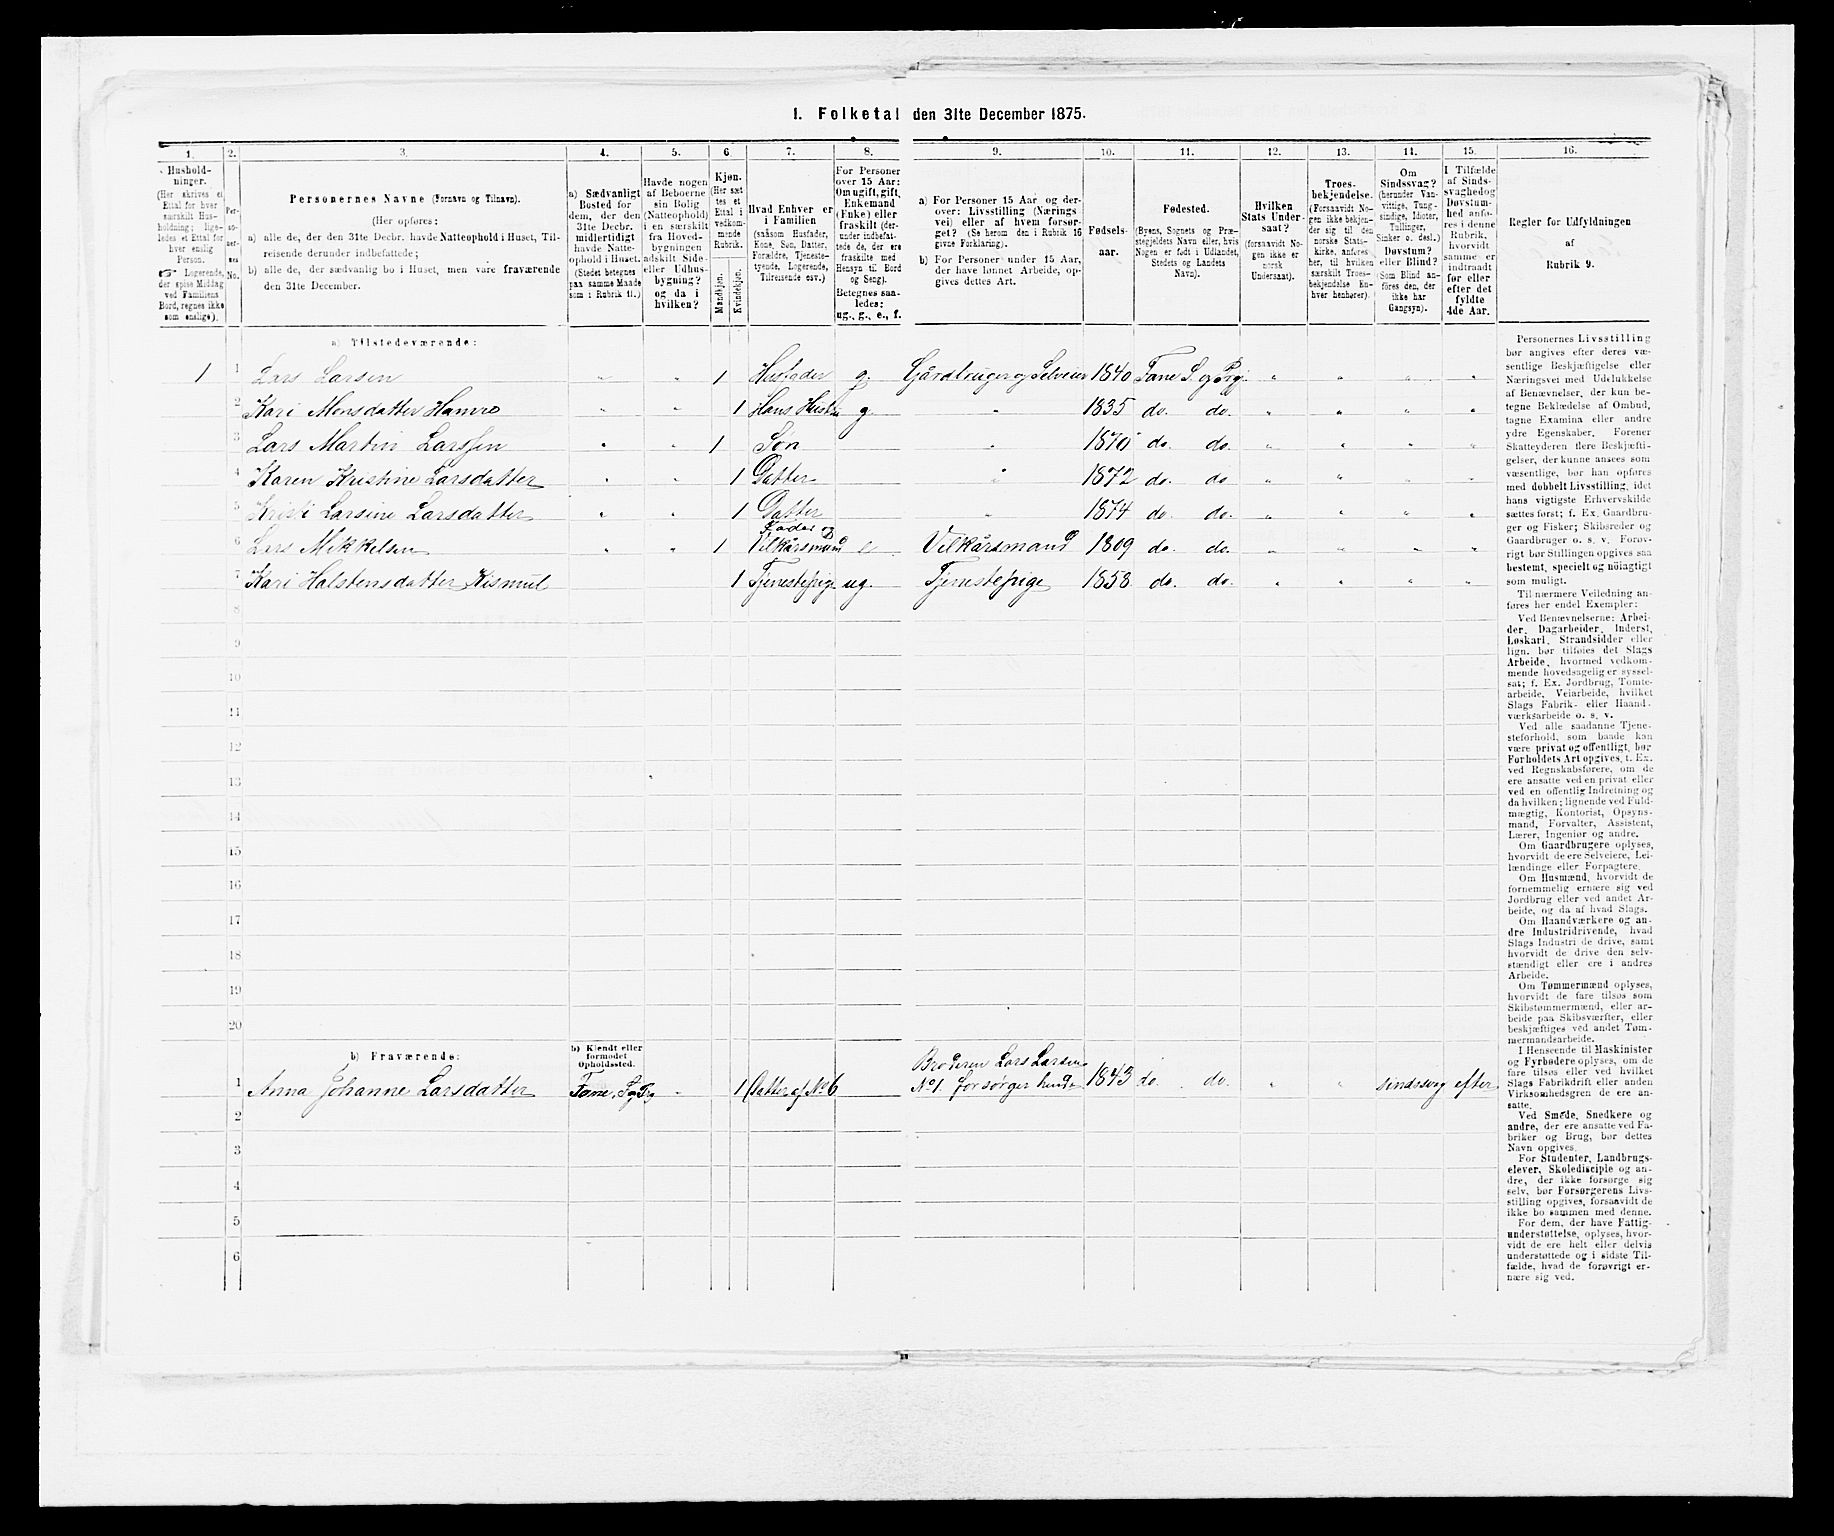 1. Folketal den 31te December 1875.
1. 2. 3. 4. 5. 6. 7. 8. 9. 10. 11. 12. 13. 14. 15. 16.
Hushold-
ninger.
(Her skrives et
Ettal for hver
særskilt Hus-
holdning; lige-
ledes et Ettal for
hver enslig
Person.
☞ Logerende,
der spise Middag
ved Familiens
Bord, regnes ikke
som enslige).
Per-
so-
ner-
nes
No.
Personernes Navne (Fornavn og Tilnavn).
(Her opføres:
a) alle de, der den 31te Decbr. havde Natteophold i Huset, Til-
reisende derunder indbefattede;
b) alle de, der sædvanlig bo i Huset, men vare fraværende
den 31te December.
a) Sædvanligt
Bosted for
dem, der den
31te Decbr.
midlertidigt
havde Natte-
ophold i Huset.
(Stedet betegnes
paa samme Maade
som i Rubrik 11.)
Havde nogen
af Beboerne
sin Bolig
(Natteophold)
i en særskilt
fra Hoved-
bygningen
adskilt Side-
eller Udhus-
bygning?
og da i
hvilken?
Kjøn.
(Her sæt-
tes et
Ettal i
vedkom-
mende
Rubrik.
Mandkjøn.
Kvindekjøn.
Hvad Enhver er
i Familien
(saasom Husfader,
Kone, Søn, Datter,
Forældre, Tjeneste-
tyende, Logerende,
Tilreisende osv.)
For Personer
over 15 Aar:
Om ugift, gift,
Enkemand
(Enke) eller
fraskilt (der-
under indbefat-
tede de, der ere
fraskilte med
Hensyn til Bord
og Seng).
Betegnes saa-
ledes:
ug., g., e., f.
a) For Personer 15 Aar og der-
over: Livsstilling (Nærings
vei) eller af hvem forsør-
get? (Se herom den i Rubrik 16
givne Forklaring).
b) For Personer under 15 Aar,
der have lønnet Arbeide, op-
gives dettes Art.
Fødsels-
aar.
Fødested.
(Byens, Sognets og Præ-
stegjeldets Navn eller, hvis
Nogen er født i Udlandet,
Stedets og Landets
Navn).
Hvilken
Stats Under-
saat?
(forsaavidt No-
gen ikke er
norsk
Undersaat).
Troes-
bekjendelse.
(Forsaavidt No-
gen ikke bekjen-
der sig til den
norske Stats-
kirke, anføres
her, til hvilken
særskilt Troes-
bekjendelse En-
hver henhører).
Om
Sindssvag?
(herunder Van-
vittige, Tung-
sindige, Idioter,
Tullinger,
Sinker o. desl.)
Døvstum?
eller Blind?
(Som Blind an-
føres den, der
ikke har
Gangsyn).
I Tilfælde
af Sinds-
svaghed og
Døvstum-
hed anfø-
res i denne
Rubrik,
hvorvidt
samme er
indtraadt
før eller
efter det
fyldte
4de Aar.
Regler for Udfyldningen
af
Rubrik 9.
a) Tilstedeværende:
1 1 Lars Larsen " " 1 Husfader g. Gårdbruger og Selveier 1840 Fane S. og Prgj. " " " "
2 Kari Monsdatter Hamre " " 1 Hans Hustru g. " 1835 do. do. " " " "
3 Lars Martin Larssen " " 1 Søn " 1870 do. do. " " " "
4 Karen Kristine Larsdatter " " 1 Datter " 1872 do. do " " " "
5 Kristi Larsine Larsdatter " " 1 Datter " 1874 do. do. " " " "
6 Lars Mikkelsen " " 1 Fader og Vilkårsmand e. Vilkårsmand 1809 do. do. " " " "
7 Kari Halstensdatter Kismul 1 Tjenestepige ug. Tjenestepige 1858 do. do. " " " "
8
9
10
11
12
13
14
15
16
17
18
19
20
b) Fraværende:
b) Kjendt eller
formodet
Opholdssted.
1 Anna Johanne Larsdatter Fane, Sg Prg " 1 Datter af No 6 Broderen Lars Larsen
No 1. forsørger hende 1843 do. do. " " sindssvag efter
2
3
4
5
6
Personernes Livsstilling
bør angives efter deres væ-
sentlige Beskjæftigelse eller
Næringsvei med Udelukkelse
af Benævnelser, der kun be-
tegne Beklædelse af Ombud,
tagne Examina eller andre
ydre Egenskaber. Forener
Skatteyderen flere Beskjæfti-
gelser, der kunne ansees som
væsentlige, bør han opføres
med dobbelt Livsstilling, idet
hans vigtigste Erhvervskilde
sættes først; f. Ex. Gaardbru-
ger og Fisker; Skibsreder og
Gaardbruger o. s. v. Forøv-
rigt bør Stillingen opgives saa
bestemt, specielt og nøiagtigt
som muligt.
Til nærmere Veiledning an-
føres her endel Exempler:
Ved Benævnelserne: Arbei-
der, Dagarbeider, Inderst,
Løskarl, Strandsidder eller
lign. bør tilføies det Slags
Arbeide, hvormed vedkom-
mende hovedsagelig er syssel-
sat; f. Ex. Jordbrug, Tomte-
arbeide, Veiarbeide, hvilket
Slags Fabrik- eller Haand-
værksarbeide o. s. v.
Ved alle saadanne Tjene-
steforhold, som baade kan
være privat og offentligt, bør
Forholdets Art opgives, t. Ex.
ved Regnskabsførere, om de
ere ansatte ved en privat eller
ved en offentlig Indretning og
da hvilken; lignende ved Fuld-
mægtig, Kontorist, Opsyns-
mand, Forvalter, Assistent,
Lærer, Ingeniør og andre.
Om Gaardbrugere oplyses,
hvorvidt de ere Selveiere, Lei-
lændinge eller Forpagtere.
Om Husmænd, hvorvidt de
fornemmelig ernære sig ved
Jordbrug eller ved andet Ar-
beide, og da af hvad Slags.
Om Haandværkere og an-
dre Industridrivende, hvad
Slags Industri de drive, samt
hvorvidt de drive den selv-
stændigt eller ere i andres
Arbeide.
Om Tømmermænd oplyses,
hvorvidt de fare tilsøs som
Skibstømmermænd, eller ar-
beide paa Skibsværfter, eller
beskjæftiges ved andet Tøm-
mermandsarbeide.
I Henseende til Maskinister
og Fyrbødere oplyses, om de
fare tilsøs eller ved hvilket
Slags Fabrikdrift eller anden
Virksomhedsgren de ere an-
satte.
Ved Smede, Snedkere og
andre, der ere ansatte ved Fa-
briker og Brug, bør dettes
Navn opgives.
For Studenter, Landbrugs-
elever, Skoledisciple og an-
dre, der ikke forsørge sig
selv, bør Forsørgerens Livs-
stilling opgives, forsaavidt de
ikke bo sammen med denne.
For dem, der have Fattig-
understøttelse, oplyses, hvor-
vidt de ere helt eller delvis
understøttede og i sidste Til-
fælde, hvad de forøvrigt er-
nære sig ved.